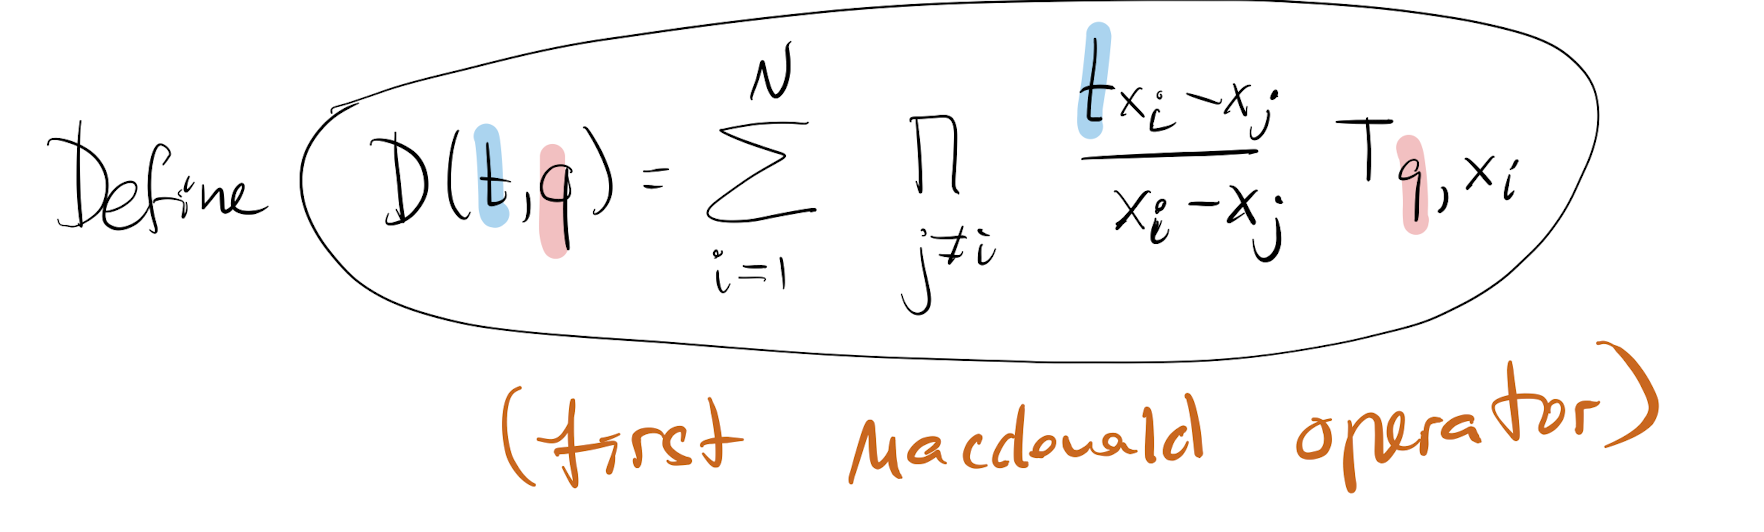 Define D(t,q) = \sum_{i=1}^{N} \prod_{j≠i} \frac{t x_i - x_j}{x_i - x_j} T_{q, x_i}
(first Macdonald operator)